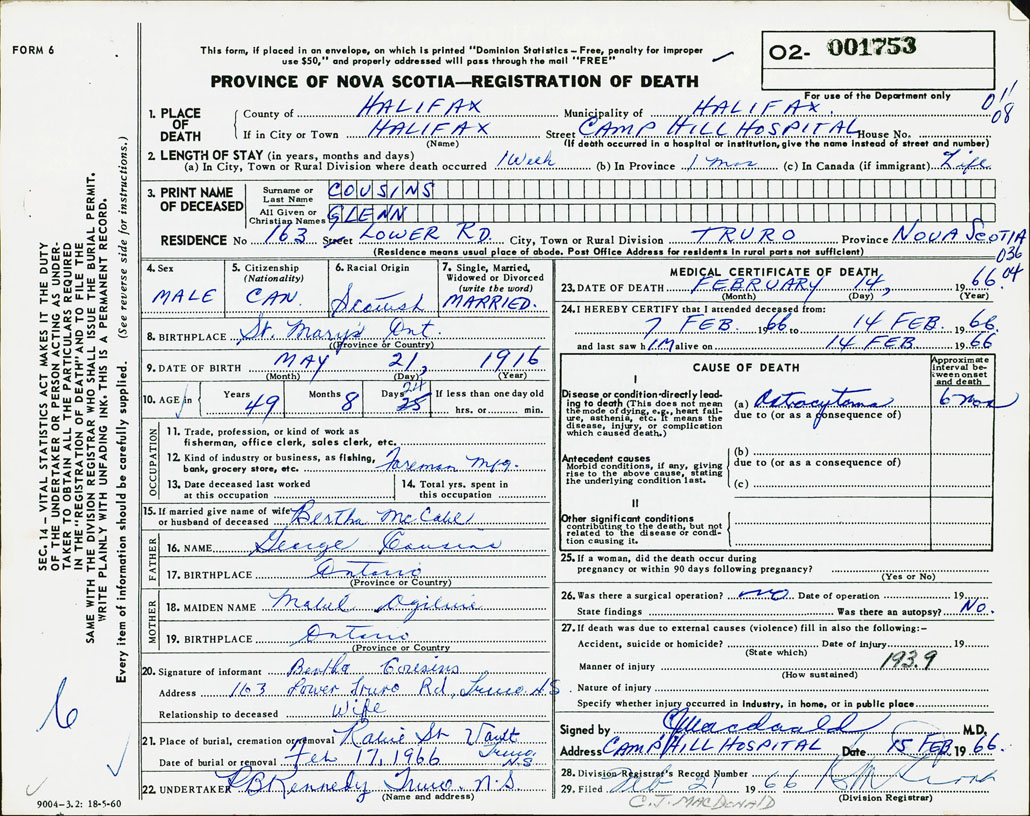 FORM 6
This form, if placed in an envelope, on which is printed "Dominion Statistics – Free, penalty for improper
use $50," and properly addressed will pass through the mail "FREE"
O2- 001753
PROVINCE OF NOVA SCOTIA—REGISTRATION OF DEATH
For use of the Department only
011
08
1. PLACE OF DEATH
County of HALIFAX Municipality of HALIFAX.
If in City or Town HALIFAX Street CAMP HILL HOSPITAL House No.
(Name) (If death occurred in a hospital or institution, give the name instead of street and number)
2. LENGTH OF STAY (in years, months and days)
(a) In City, Town or Rural Division where death occurred 1 Week (b) In Province 1 Mos (c) In Canada (if immigrant) Life
3. PRINT NAME OF DECEASED
Surname or Last Name COUSINS
All Given or Christian Names GLENN
RESIDENCE No 163 Street LOWER RD. City, Town or Rural Division TRURO Province NOVA SCOTIA
(Residence means usual place of abode. Post Office Address for residents in rural parts not sufficient)
036
04
4. Sex MALE
5. Citizenship (Nationality) CAN.
6. Racial Origin Scottish
7. Single, Married, Widowed or Divorced (write the word) MARRIED.
8. BIRTHPLACE St. Mary's Ont.
(Province or Country)
9. DATE OF BIRTH MAY 21, 1916
(Month) (Day) (Year)
10. AGE in Years 49 Months 8 Days 25 24 If less than one day old
hrs. or min.
OCCUPATION
11. Trade, profession, or kind of work as
fisherman, office clerk, sales clerk, etc.
12. Kind of industry or business, as fishing,
bank, grocery store, etc. Foreman Mfg.
13. Date deceased last worked
at this occupation
14. Total yrs. spent in
this occupation
15. If married give name of wife
or husband of deceased Bertha McCabe
FATHER
16. NAME George Cousins
17. BIRTHPLACE Ontario
(Province or Country)
MOTHER
18. MAIDEN NAME Mabel Ogilvie
19. BIRTHPLACE Ontario
(Province or Country
20. Signature of informant Bertha Cousins
Address 163 Lower Truro Rd, Truro N.S.
Relationship to deceased Wife
21. Place of burial, cremation or removal St. Vault
Truro, N.S.
Date of burial or removal Feb 17, 1966
22. UNDERTAKER P B Kennedy Truro. N.S.
(Name and address)
MEDICAL CERTIFICATE OF DEATH
23. DATE OF DEATH FEBRUARY 14, 1966.
(Month) (Day) (Year)
24. I HEREBY CERTIFY that I attended deceased from:
7 FEB. 1966 to 14 FEB. 1966.
and last saw h IM alive on 14 FEB 1966
CAUSE OF DEATH
Approximate interval between onset and death
I
Disease or condition directly leading to death (This does not mean the mode of dying, e.g., heart failure, asthenia, etc. It means the disease, injury, or complication which caused death.)
(a) Astrocytoma 6 mos
due to (or as a consequence of)
Antecedent causes
Morbid conditions, if any, giving rise to the above cause, stating the underlying condition last.
(b)
due to (or as a consequence of)
(c)
II
Other significant conditions
contributing to the death, but not related to the disease or condition causing it.
25. If a woman, did the death occur during
pregnancy or within 90 days following pregnancy?
(Yes or No)
26. Was there a surgical operation? no Date of operation 19
State findings Was there an autopsy? No.
27. If death was due to external causes (violence) fill in also the following:–
Accident, suicide or homicide? Date of injury 19
(State which)
193.9
Manner of injury
(How sustained)
Nature of injury
Specify whether injury occurred in Industry, in home, or in public place
Signed by CJMacdonald M.D.
Address CAMP HILL HOSPITAL Date 15 FEB 1966.
28. Division Registrar's Record Number
29. Filed Feb 21 1966
(Division Registrar)
C. J. MACDONALD
SEC. 14 – VITAL STATISTICS ACT MAKES IT THE DUTY
OF THE UNDERTAKER OR PERSON ACTING AS UNDER-
TAKER TO OBTAIN ALL THE PARTICULARS REQUIRED
IN THE "REGISTRATION OF DEATH" AND TO FILE THE
SAME WITH THE DIVISION REGISTRAR WHO SHALL ISSUE THE BURIAL PERMIT.
WRITE PLAINLY WITH UNFADING INK. THIS IS A PERMANENT RECORD.
Every item of information should be carefully supplied. (See reverse side for instructions.)
6
9004-3.2: 18-5-60